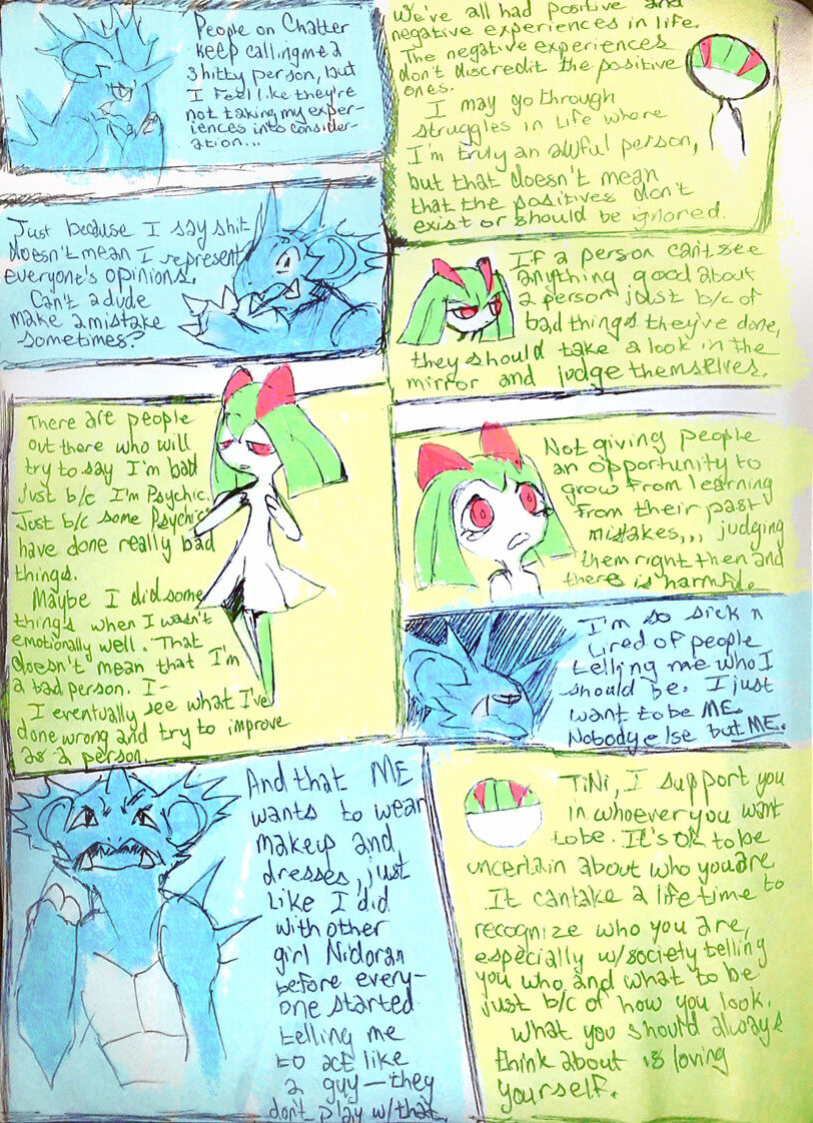 People on Chatter
keep calling me a
shitty person, but
I feel like they're
not taking my exper-
iences into consider-
ation...
We've all had positive and
negative experiences in life.
The negative experiences
don't discredit the positive
ones.
I may go through
struggles in life where
I'm truly an awful person,
but that doesn't mean
that the positives don't
exist or should be ignored.
Just because I say shit
doesn't mean I represent
everyone's opinions.
Can't a dude
make a mistake
sometimes?
If a person can't see
anything good about
a person just b/c of
bad things they've done,
they should take a look in the
mirror and judge themselves.
There are people
out there who will
try to say I'm bad
just b/c I'm Psychic.
Just b/c some Psychic
have done really bad
things.
Maybe I did some
things when I wasn't
emotionally well. That
doesn't mean that I'm
a bad person. I-
I eventually see what I've
done wrong and try to improve
as a person.
Not giving people
an opportunity to
grow from learning
from their past
mistakes,,, judging
them right then and
there is harmful.
I'm so sick n
tired of people
telling me who I
should be. I just
want to be ME.
Nobody else but ME.
And that ME
wants to wear
makeup and
dresses, just
like I did
with other
girl Nidoran
before every-
one started
telling me
to act like
a guy—they
don't play w/that.
TiNi, I support you
in whoever you want
to be. It's OK to be
uncertain about who you are
It can take a lifetime to
recognize who you are,
especially w/society telling
you who and what to be
just b/c of how you look.
What you should always
think about is loving
yourself.